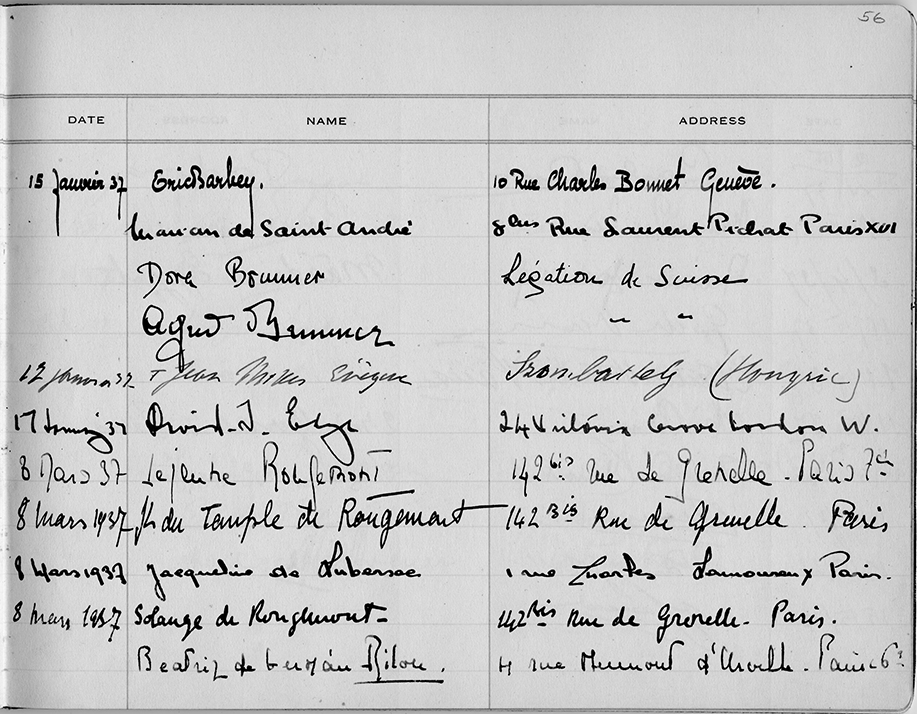 56
DATE NAME ADDRESS
15 Janvier 37 Eric Barbey. 10 Rue Charles Bonnet Genève.
de Saint André 8 bis Rue Laurent Pichat Paris XVI
Dora Brunner Légation de Suisse
Brunner " "
12 janvier 37 + Jean Mikes Évêque Szombathely (Hongrie)
17 37 David J. Grove London W.
8 Mars 37 Rougemont 142 bis rue de Grenelle - Paris 7
8 Mars 1937 du Temple de Rougemont 142 Bis Rue de Grenelle. Paris
8 Mars 1937 Jacqueline de Lubersac 1 rue Charles Lamoureux Paris.
8 mars 1937 Solange de Rougemont - 142 Bis Rue de Grenelle - Paris.
Beatriz de rue Dumont d'Urville. Paris